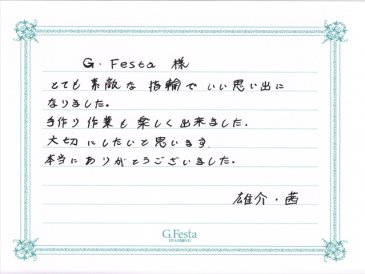 G.Festa 様
とても素敵な指輪でいい思い出に
なりました。
手作り作業も楽しく出来ました。
大切にしたいと思います
本当にありがとうございました。
雄介・茜
G.Festa